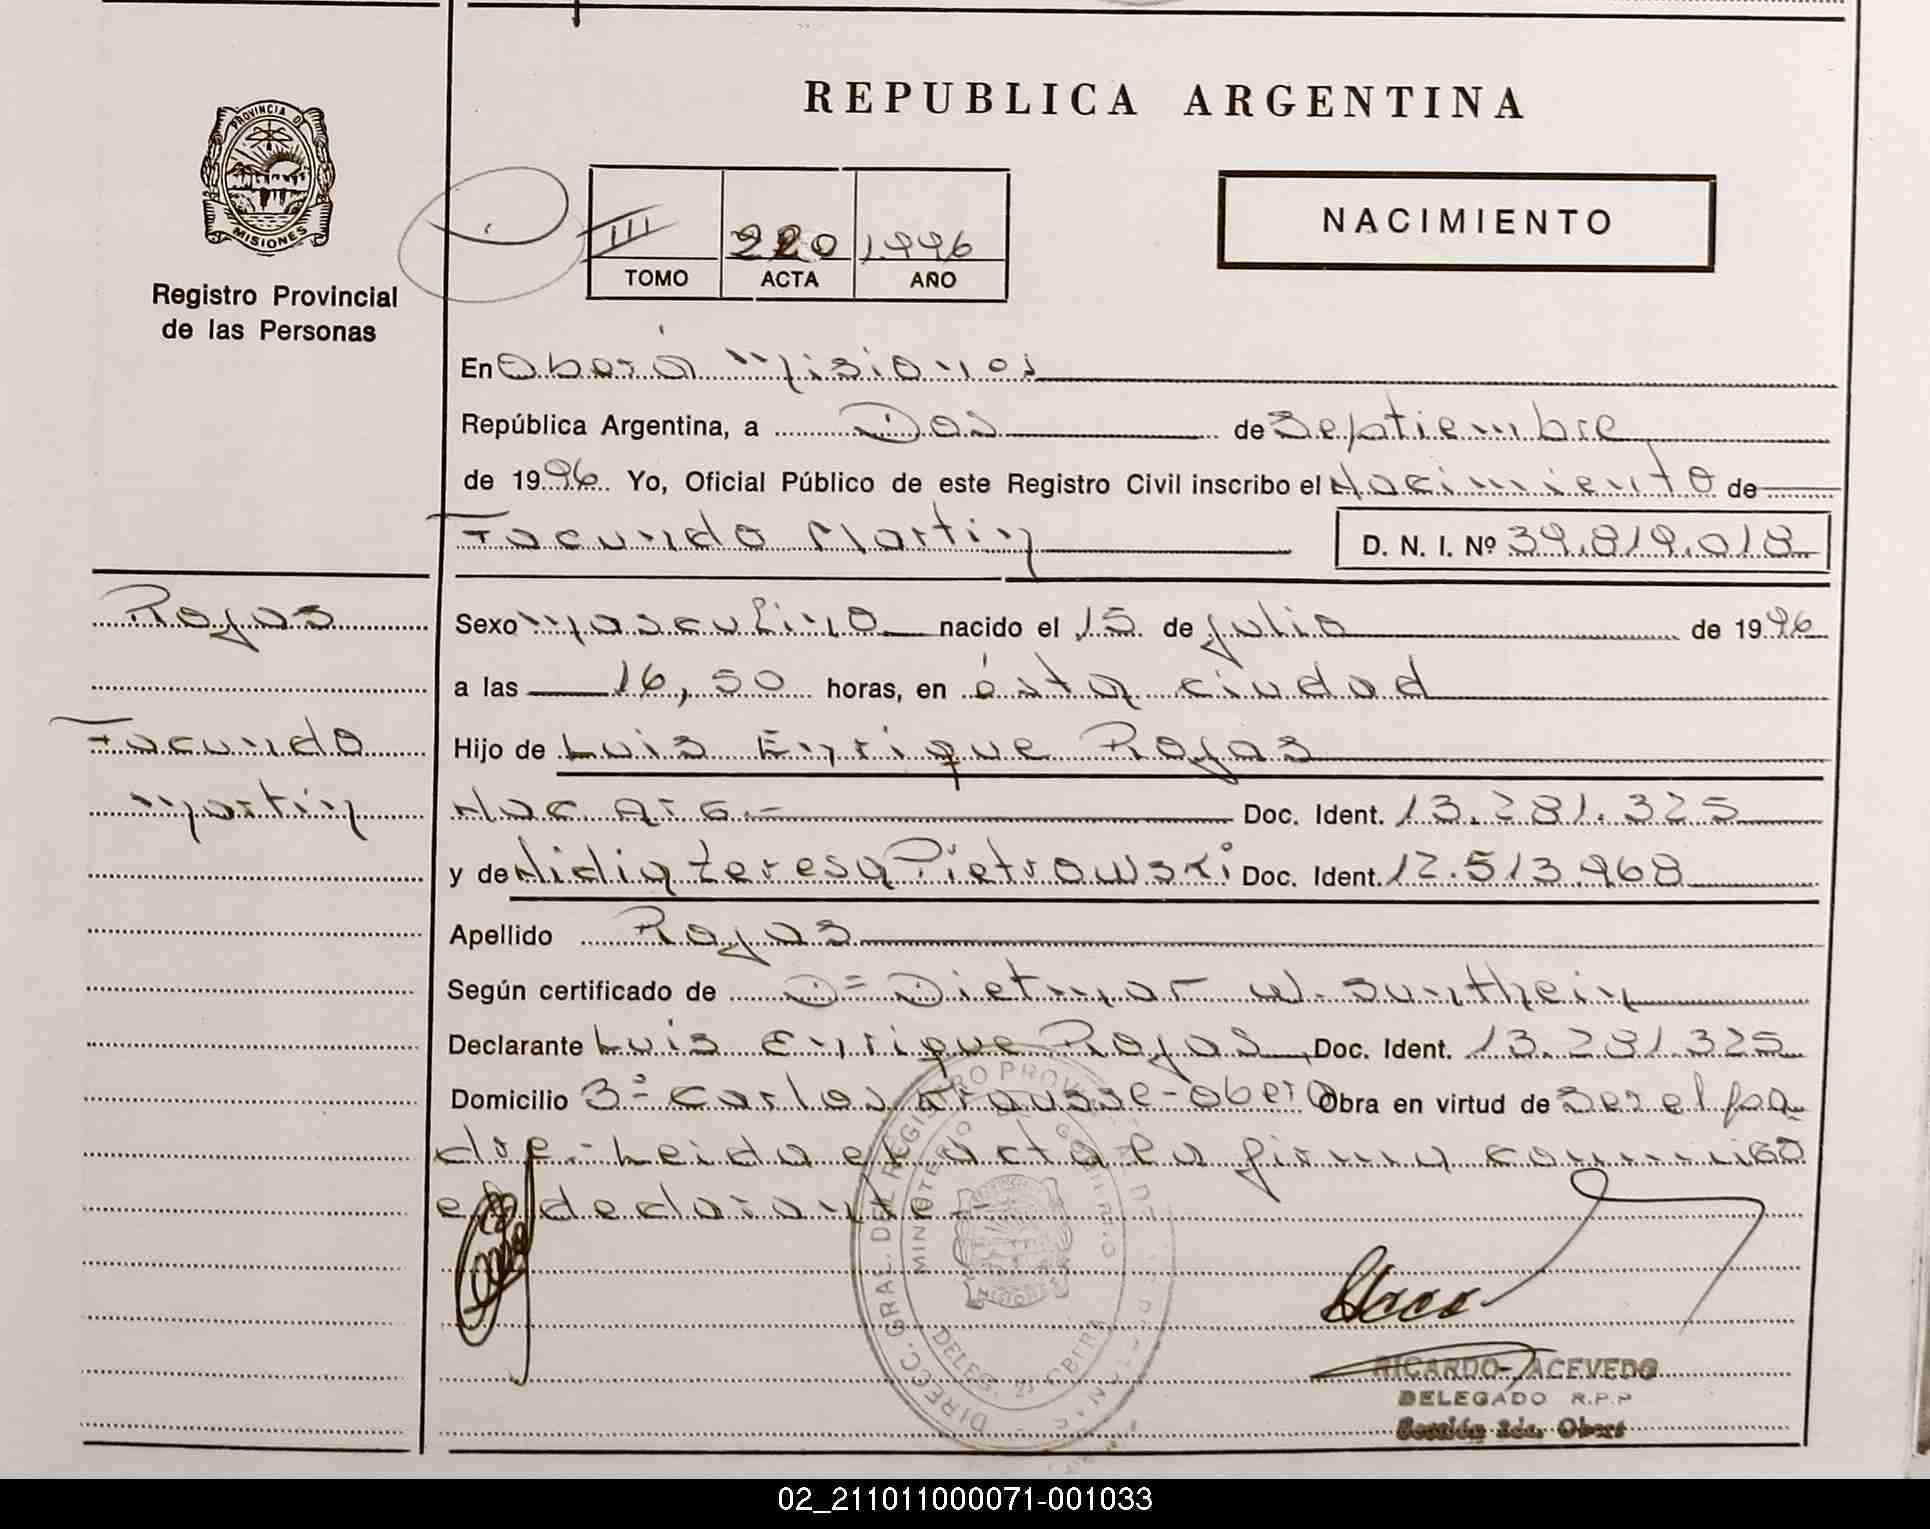 REPUBLICA ARGENTINA
PROVINCIA D
MISIONES
Registro Provincial
de las Personas
III 220 1996
TOMO ACTA AÑO
NACIMIENTO
En Oberá Misiones
República Argentina, a Dos de Septiembre
de 1996 Yo, Oficial Público de este Registro Civil inscribo el Nacimiento de
Facundo Martin D. N. I. Nº 39.819.018
Rojas
Sexo Masculino nacido el 15 de julio de 1996
a las 16,50 horas, en ésta ciudad
Facundo
Hijo de Luis Enrique Rojas
Martin
Nac. Arg.- Doc. Ident. 13.281.325
y de Nidia Teresa Pietrowski Doc. Ident. 12.513.968
Apellido Rojas
Según certificado de D= Dietmar W. Sunthein
Declarante Luis Enrique Rojas Doc. Ident. 13.281.325
Domicilio 3= Carlos Krausse-Obera Obra en virtud de ser el pa-
dre.- Leida el acta la firma conmigo
el declarante.-
DIRECC. GRAL. DEL REGISTRO PROV.
MINISTERIO DE GOBIERNO
MISIONES
DELEG. 2ª OBERA
RICARDO ACEVEDO
DELEGADO R.P.P
Sección 2da. Obera
02_211011000071-001033